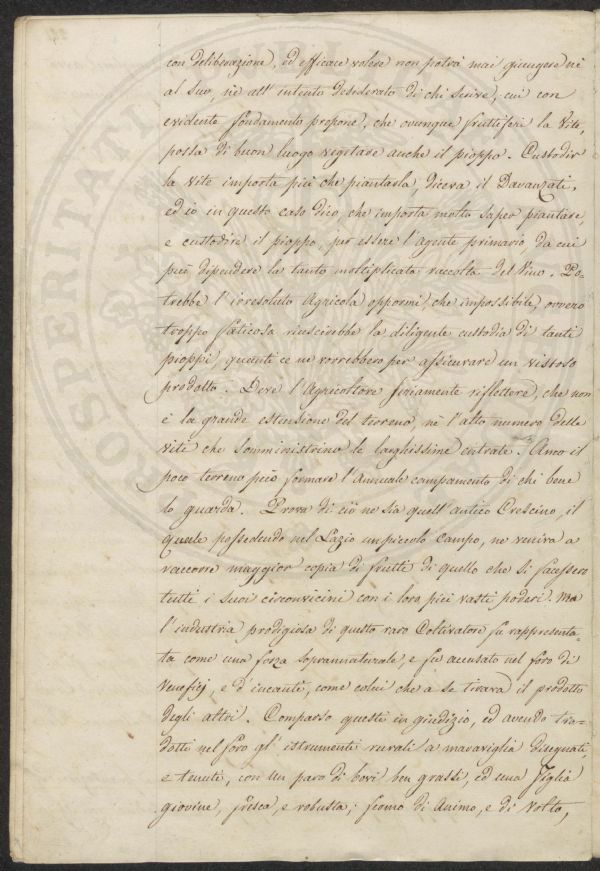 con deliberazione, ed efficace volere non potrà mai giungere nè
al suo, nè all' intento desiderato di chi scrive, cui con
evidente fondamento propone, che ovunque fruttiferi la Vite,
possa di buon luogo vegetare anche il pioppo. Custodir
la vite importa più che piantarla, diceva il Davanzati,
ed io in questo caso dico, che importa molto saper piantare,
e custodire il pioppo, per essere l'agente primario da cui
può dipendere la tanto moltiplicata raccolta del Vino. Po-
trebbe l'irresoluto Agricola oppormi, che impossibile, ovvero
troppo faticosa riuscirebbe la diligente custodia di tanti
pioppi, quanti ce ne vorrebbero per assicurare un vistoso
prodotto. Deve l'Agricoltore seriamente riflettere, che non
è la grande estensione del terreno, nè l'alto numero delle
vite che somministrino le larghissime entrate. Anco il
poco terreno può formare l'Annuale campamento di chi bene
lo guarda. Prova di ciò ne sia quell' antico Crescino, il
quale possedendo nel Lazio un piccolo Campo, ne veniva a
raccorre maggior copia di frutti di quello che si facessero
tutti i suoi circonvicini con i loro più vasti poderi. Ma
l'industria prodigiosa di questo raro Coltivatore fu rappresenta-
ta come una forza soprannaturale, e fu accusato nel foro di
Veneficj, e d'incanti, come colui che a se tirava il prodotto
degli altri. Comparso questi in giudizio, ed avendo tra-
dotti nel foro gl' istrumenti rurali a maraviglia disegnati,
e tenuti, con un paro di bovi ben grassi, ed una Figlia
giovine, fresca, e robusta; scomo di Animo, e di Volto,
PROSPERITATI